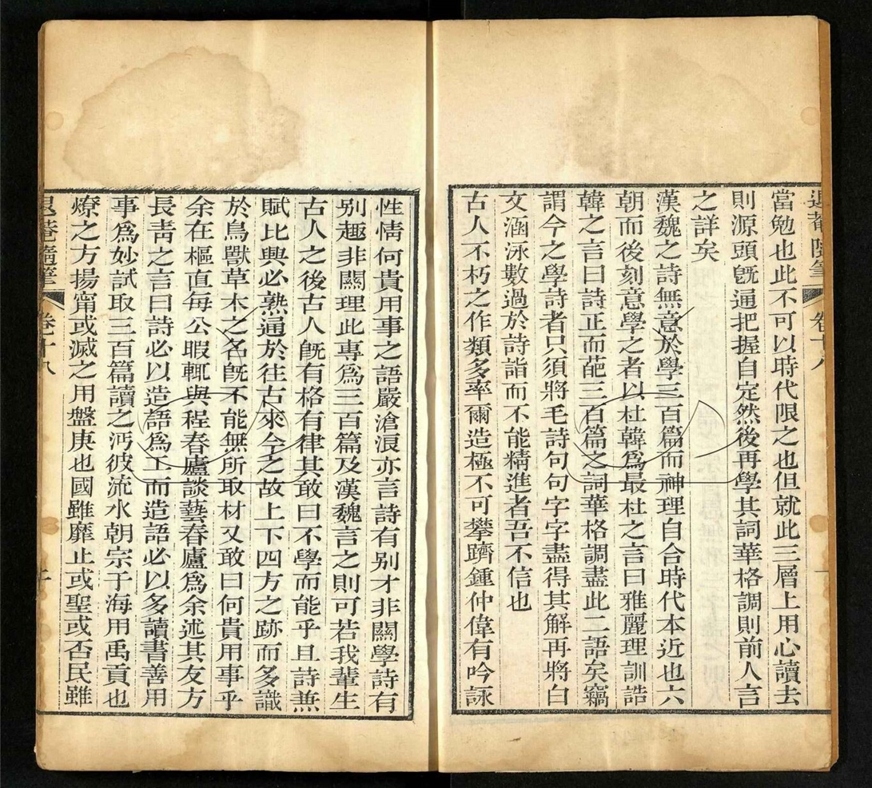 退菴隨筆 卷十八
當勉也此不可以時代限之也但就此三層上用心讀去
則源頭旣通把握自定然後再學其詞華格調則前人言
之詳矣
漢魏之詩無意於學三百篇而神理自合時代本近也六
朝而後刻意學之者以杜韓爲最杜之言曰雅麗理訓誥
韓之言曰詩正而葩三百篇之詞華格調盡此二語矣竊
謂今之學詩者只須將毛詩句句字字盡得其解再將白
文涵泳數過於詩詣而不能精進者吾不信也
古人不朽之作類多率爾造極不可攀躋鍾仲偉有吟詠
性情何貴用事之語嚴滄浪亦言詩有別才非關學詩有
別趣非關理此專爲三百篇及漢魏言之則可若我輩生
古人之後古人旣有格有律其敢曰不學而能乎且詩兼
賦比興必熟通於往古來今之故上下四方之跡而多識
於鳥獸草木之名旣不能無所取材又敢曰何貴用事乎
余在樞直每公暇輒與程春廬談藝春廬爲余述其友方
長靑之言曰詩必以造語爲工而造語必以多讀書善用
事爲妙試取三百篇讀之沔彼流水朝宗于海用禹貢也
燎之方揚甯或滅之用盤庚也國雖靡止或聖或否民雖
退菴隨筆 卷十八